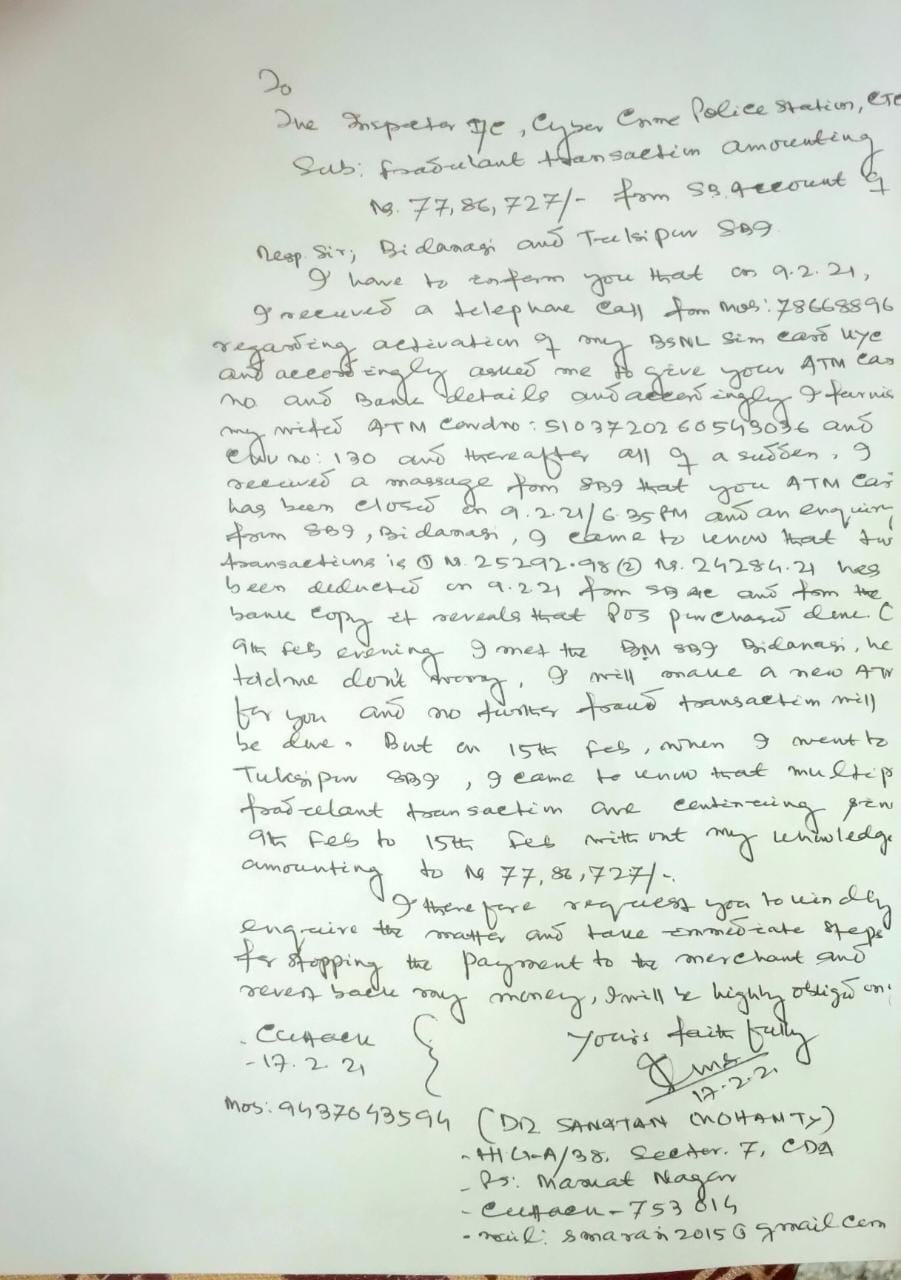 To
The Inspector I/C, Cyber Crime Police Station, CTC
Sub: fradulant transaction amounting
Rs. 77,86,727/- from SB. Account of
Resp. Sir; Bidanasi and Tulsipur SBI
I have to inform you that on 9.2.21,
I received a telephone call from Mob: 78668896
regarding activation of my BSNL Sim card kyc
and accordingly asked me to give your ATM Car
no and Bank details and accordingly I furnis
my wifes ATM Card no: 5103720260549036 and
CVV no: 130 and thereafter all of a sudden, I
received a massage from SBI that you ATM Car
has been closed on 9.2.21/6.35 PM and an enquiry
from SBI, Bidanasi, I came to know that tw
transactions is ① Rs. 25292.98 ② Rs. 24284.21 has
been deducted on 9.2.21 from SB A/C and from the
bank copy it reveals that POS purchased done. O
9th Feb evening I met the BM SBI Bidanasi, he
told me don't worry, I will make a new AT
for you and no further fraud transaction will
be done. But on 15th Feb, when I went to
Tulsipur SBI, I came to know that multip
fradulant transaction are continuing sin
9th Feb to 15th Feb without my knowledge
amounting to Rs 77,86,727/-.
I therefore request you to kindly
enquire the matter and take immediate steps
for stopping the payment to the merchant and
revert back my money, I will be highly obliged
Cuttack
- 17.2.21
Yours faithfully
17.2.21
Mob: 9437043594 (DR SANATAN MOHANTY)
- HIG-A/38, Sector. 7, CDA
- Ps: Markat Nagar
- Cuttack - 753014
- mail: smaran2015@gmail com